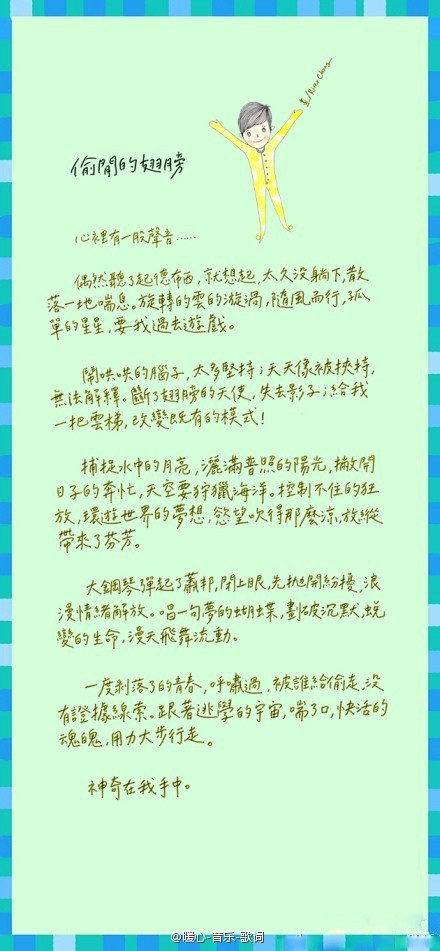 畫/Rimi Chang
偷閒的翅膀
心裡有一股聲音……
偶然聽了起德布西,就想起,太久沒躺下,散
落一地喘息。旋轉的雲的漩渦,隨風而行,孤
單的星星,要我過去遊戲。
鬧哄哄的腦子,太多堅持;天天像被挾持,
無法解釋。斷了翅膀的天使,失去影子;給我
一把雲梯,改變既有的模式!
捕捉水中的月亮,灑滿普照的陽光,撇開
日子的奔忙,天空要狩獵海洋。控制不住的狂
放,環遊世界的夢想,慾望吹得那麼涼,放縱
帶來了芬芳。
大鋼琴彈起了蕭邦,閉上眼,先拋開紛擾,浪
漫情緒解放。唱一句夢的蝴蝶,劃破沉默,蛻
變的生命,漫天飛舞流動。
一度剝落了的青春,呼嘯過,被誰給偷走,沒
有證據線索。跟著逃學的宇宙,喘了口,快活的
魂魄,用力大步行走。
神奇在我手中。
@暖心-音乐-歌词